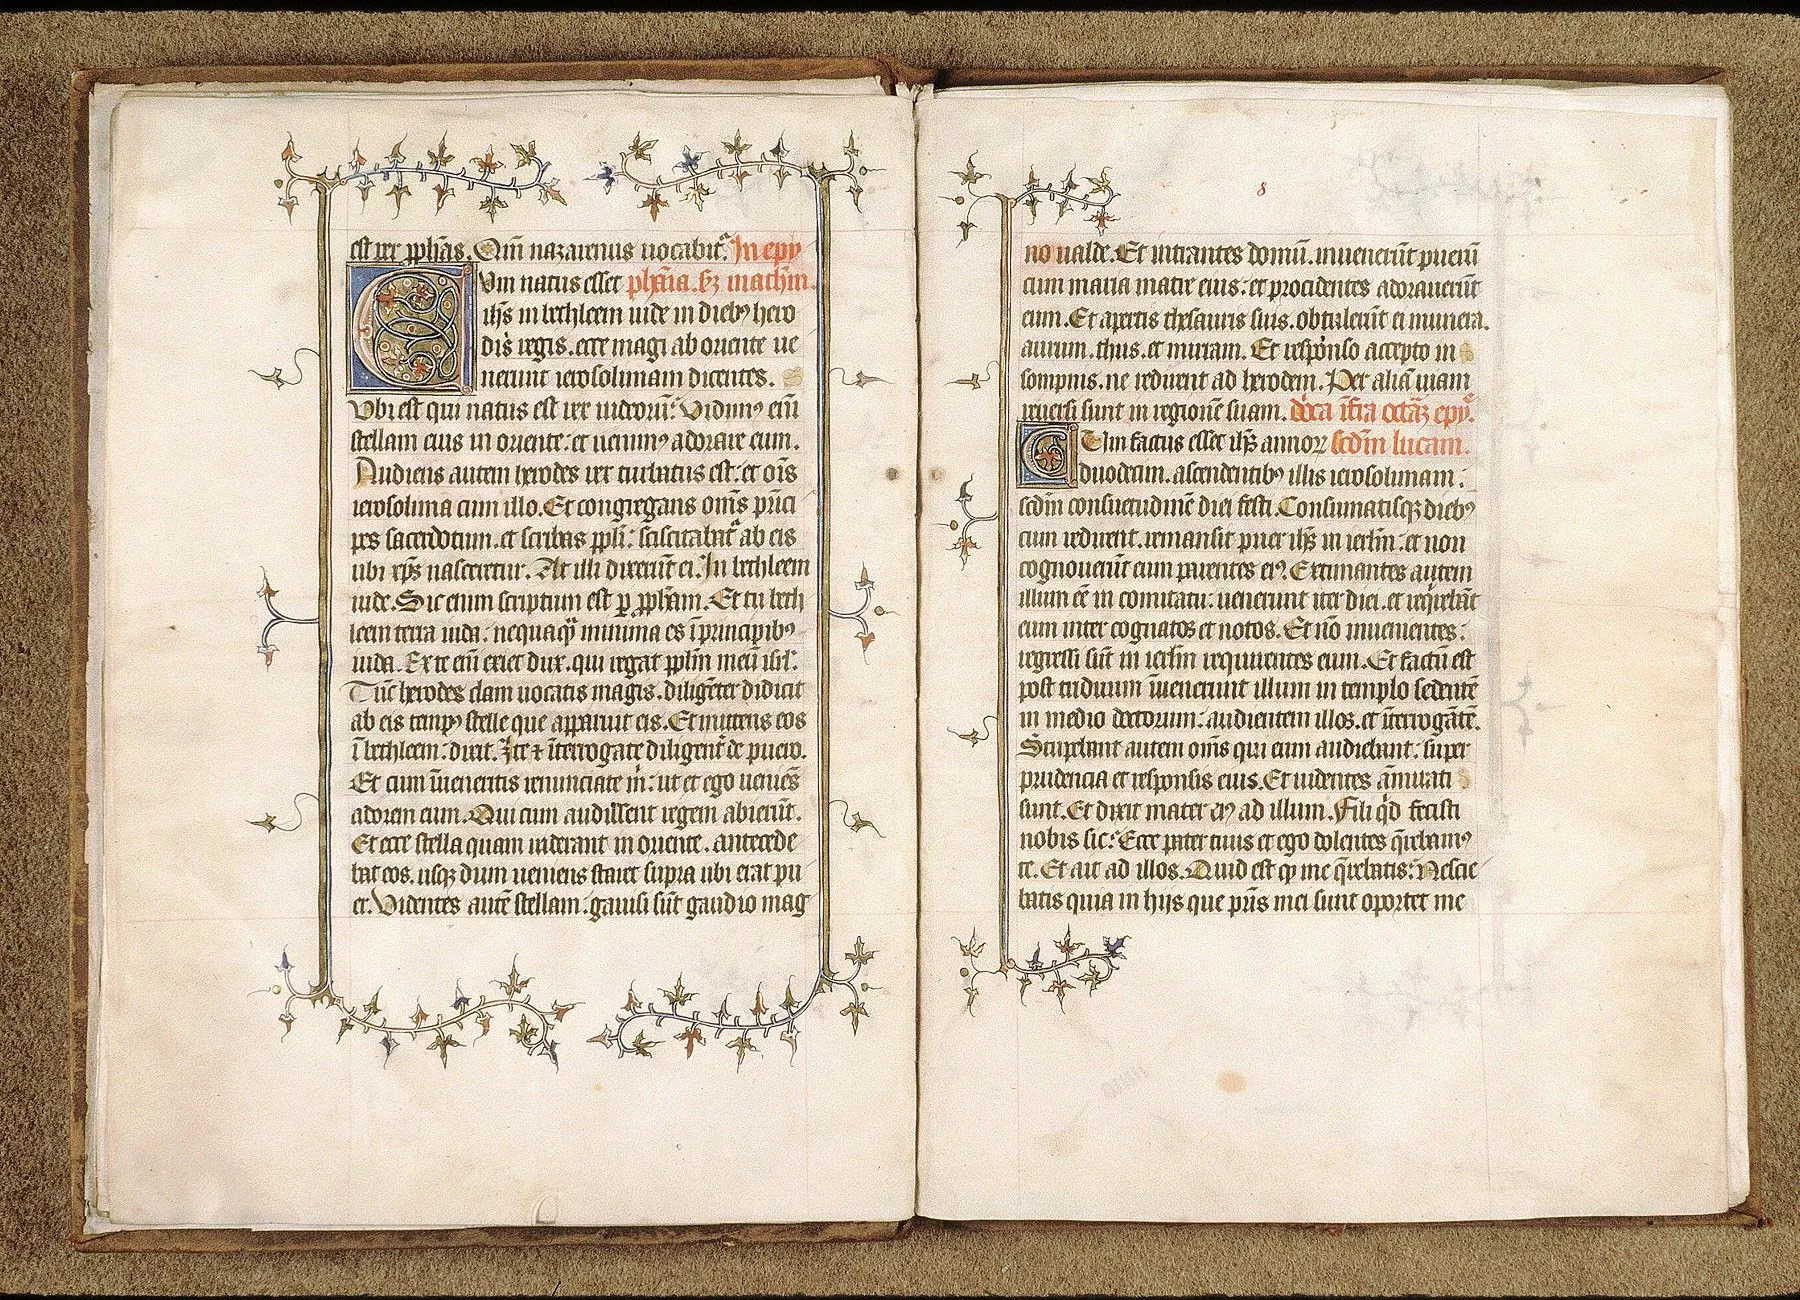 est per pphās. Qm̄ nazarenus uocabit᷑. In epy
Vm natus esset phāia. sꝫ mathm.
ih̄s in bethleem iude in diebꝰ hero
dis regis. ecce magi ab oriente ue
nerunt ierosolimam dicentes.
Vbi est qui natus est rex iudeoꝝ: Vidimꝰ eni̅
stellam eius in oriente: et uenimꝰ adorare eum.
Audiens autem herodes rex turbatus est: et om̅s
ierosolima cum illo. Et congregans om̅s pn̅ci
pes sacerdotum. et scribas pplī: sciscitabat᷑ ab eis
ubi xp̅s nasceretur. At illi dixerūt ei. In bethleem
iude. Sic enim scriptum est ꝑ pphām. Et tu beth
leem terra iuda: nequaq̄ minima es ī principibꝰ
iuda. Ex te eni̅ exiet dux. qui regat pplm̄ meū isrl̄:
Tūc herodes clam uocatis magis. diligēter didicit
ab eis tempꝰ stelle que apparuit eis. Et mittens eos
ī bethleem: dixit. Ite ⁊ īterrogate diligent᷑ de puero.
Et cum īueneritis renunciate m̄: ut et ego ueniēs
adorem eum. Qui cum audissent regem abierūt.
Et ecce stella quam uiderant in oriente. antecede
bat eos. usqꝫ dum ueniens staret supra ubi erat pu
er. Videntes autē stellam: gauisi sūt gaudio mag
8
no ualde. Et intrantes domū. inuenerūt puerū
cum maria matre eius: et procidentes adorauerūt
eum. Et apertis thesauris suis. obtulerūt ei munera.
aurum. thus. et mirram. Et respōnso accepto in
sompnis. ne redirent ad herodem. Per aliā uiam
reuersi sunt in regionē suam. dn̄ca īfra octāꝫ epy᷑.
Um factus esset ih̄s annoꝝ scdm̄ lucam.
duodecim. ascendentibꝰ illis ierosolimam:
scdm̄ consuetudinē diei festi. Consumatisqꝫ diebꝰ
cum redirent. remansit puer ih̄s in ierlm̄: et non
cognouerūt eum parentes eiꝰ. Extimantes autem
illum eē in comitatu: uenerunt iter diei. et reqrebāt
eum inter cognatos et notos. Et nō inuenientes:
regressi sūt in ierlm̄ requirentes eum. Et factū est
post triduum īuenerunt illum in templo sedentē
in medio doctorum: audientem illos. et īterrogātē.
Stupebant autem om̅s qui eum audiebant: super
prudencia et responsis eius. Et uidentes āmirati
sunt. Et dixit mater eiꝰ ad illum. Fili qd fecisti
nobis sic: Ecce pater tuus et ego dolentes q̄rebamꝰ
te. Et ait ad illos. Quid est qꝫ me q̄rebatis: Nescie
batis quia in hiis que pr̄is mei sunt oportet me